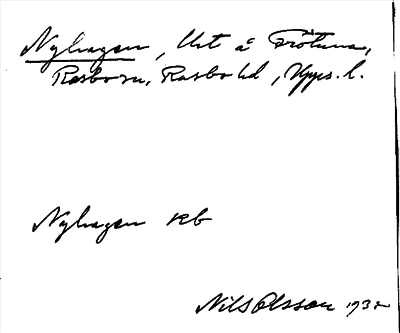 Nyhagen, Urt å Frötuna,
Rasbo sn, Rasbo hd, Upps. l.
Nyhagen kb
Nils Olsson 1932